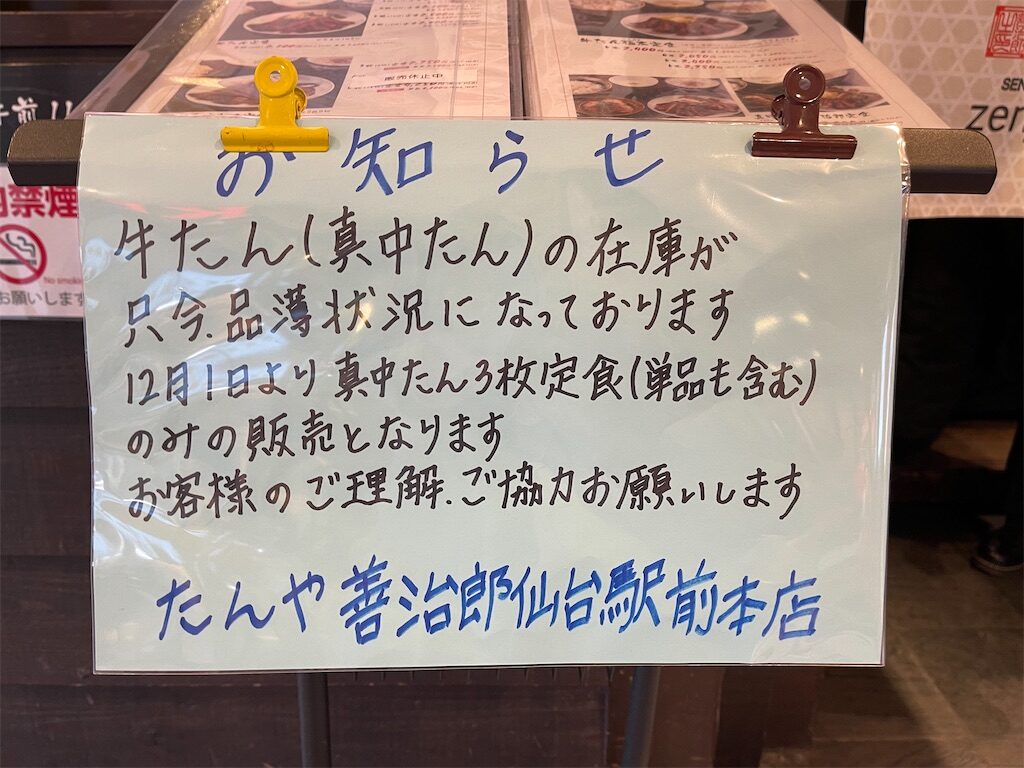 販売休止中
前
禁煙
No smoking
お願いします
SEN
zen
お知らせ
牛たん(真中たん)の在庫が
只今.品薄状況になっております
12月1日より真中たん3枚定食(単品も含む)
のみの販売となります
お客様のご理解.ご協力お願いします
たんや善治郎仙台駅前本店